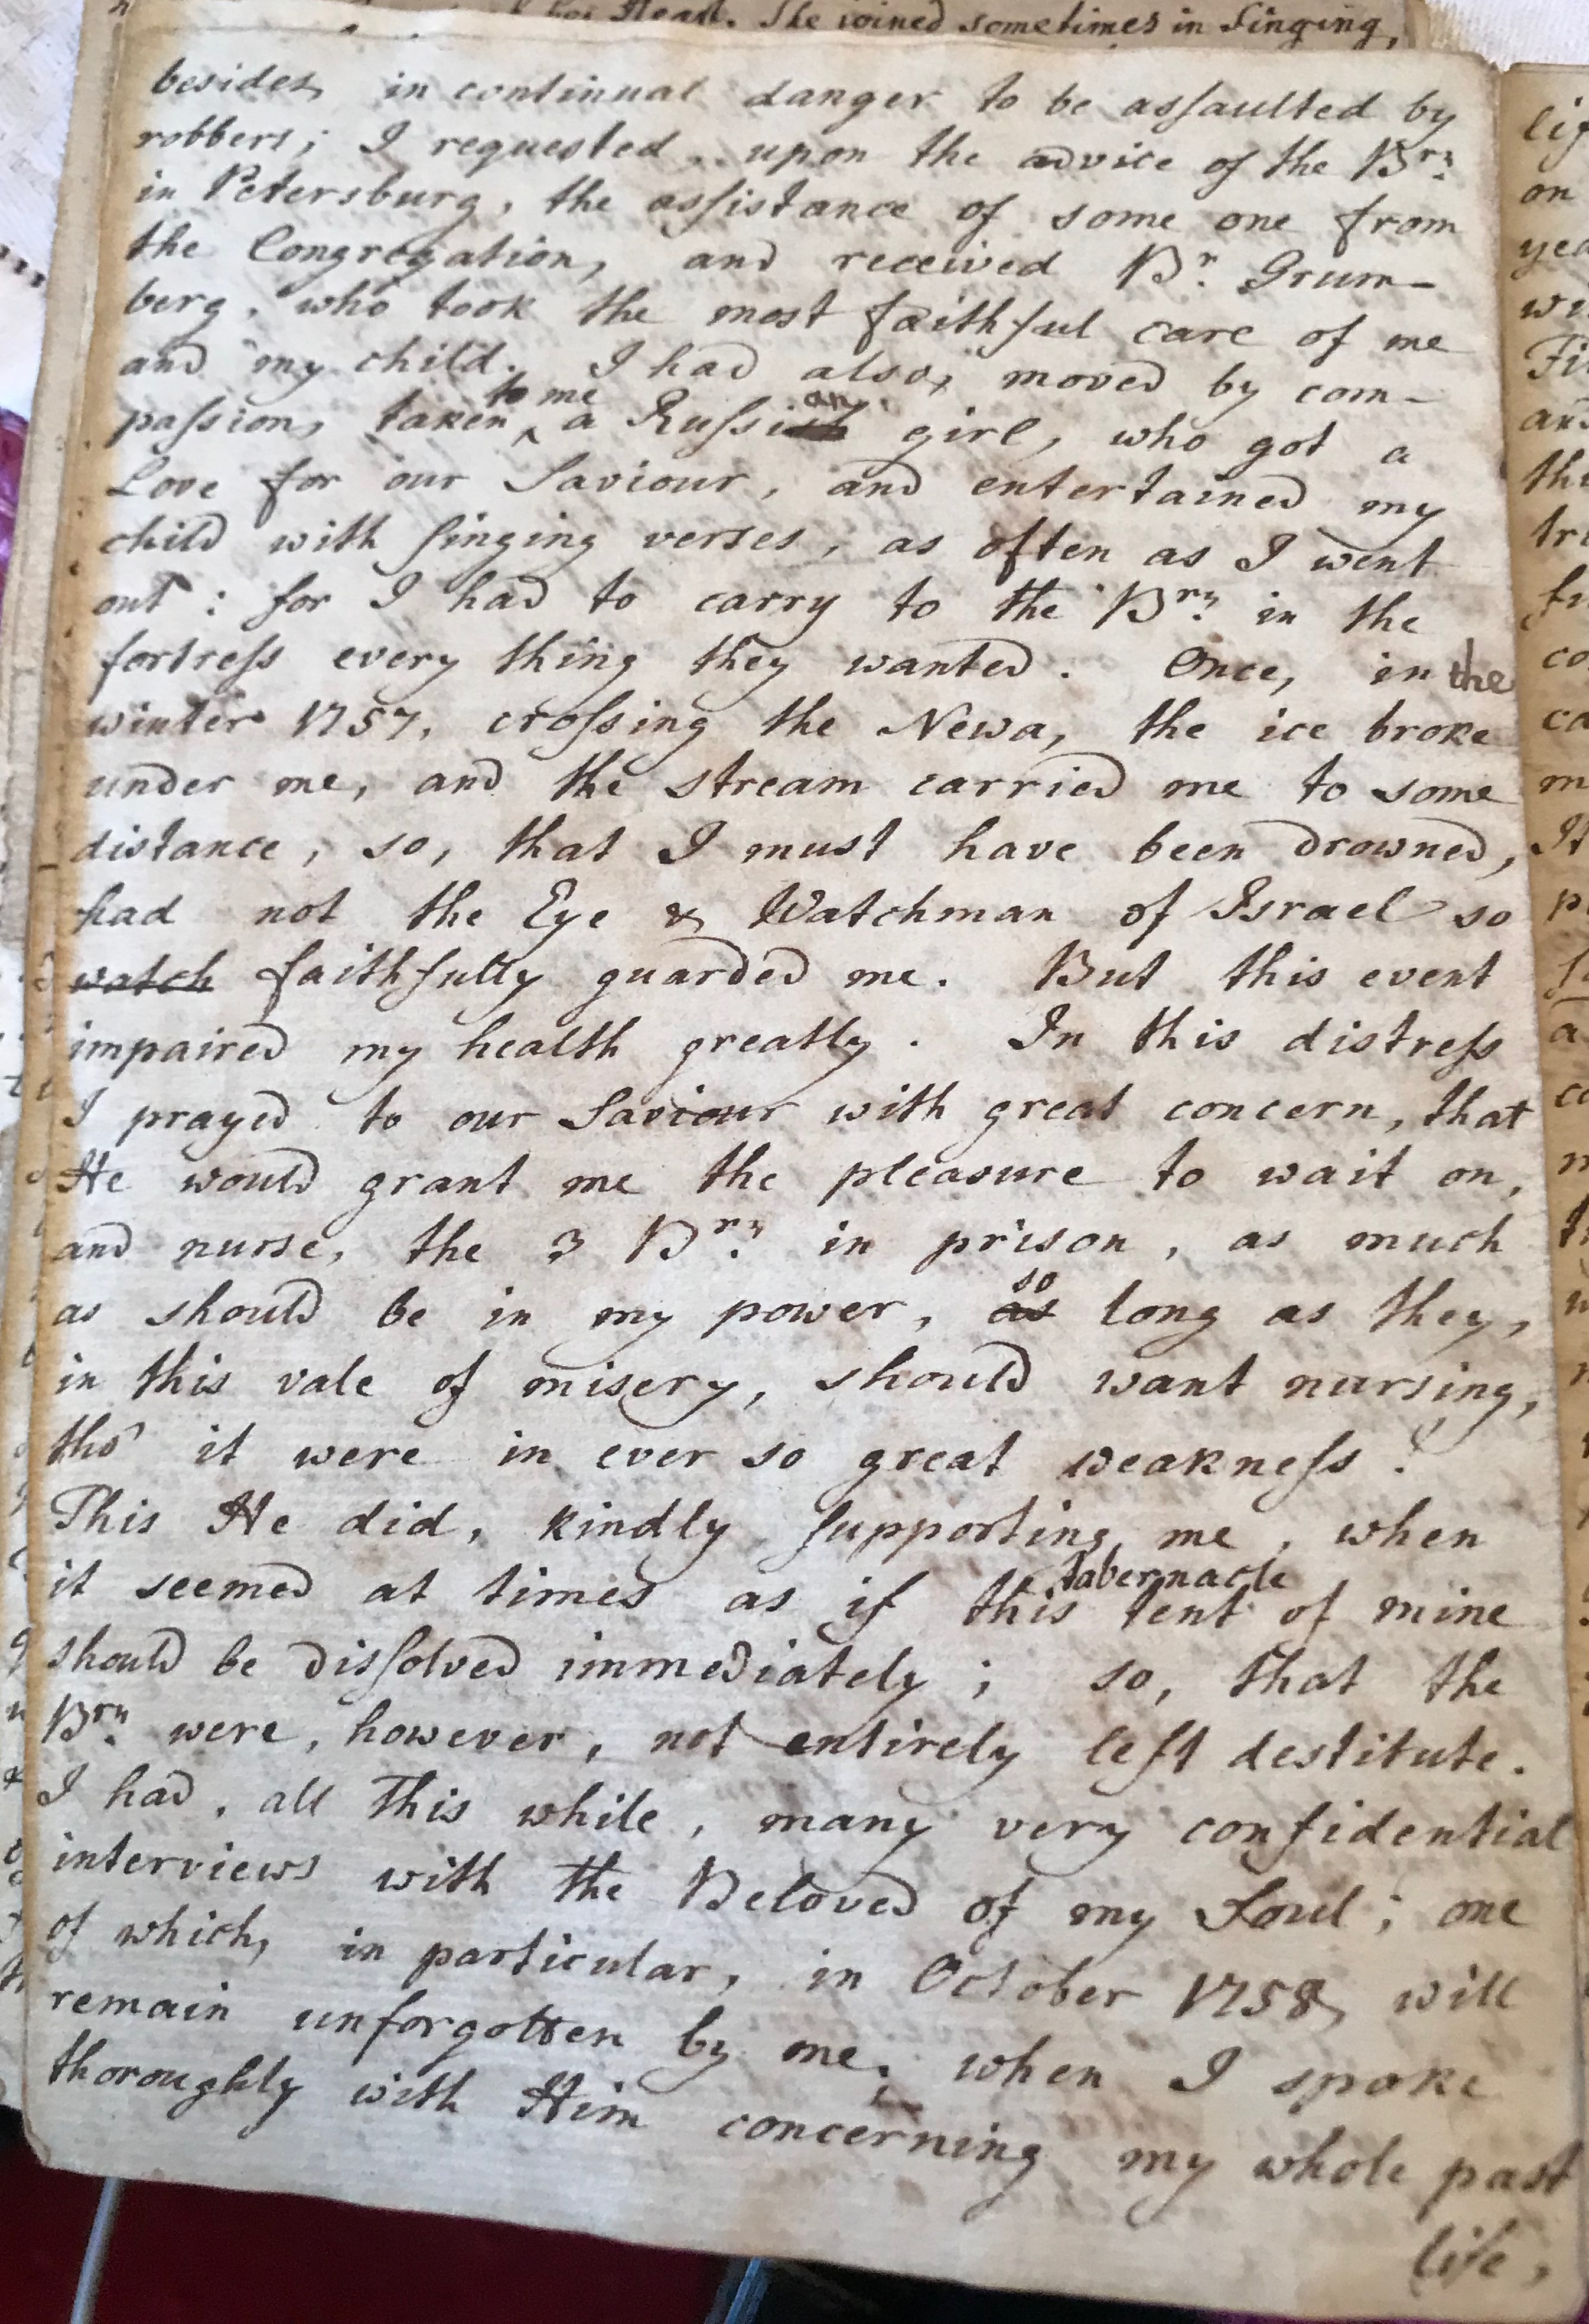 her Heart. She joined sometimes in Singing,
besides, in continual danger to be assaulted by
robbers; I requested, upon the advice of the Brn.
in Petersburg, the assistance of some one from
the Congregation, and received Br. Grum-
berg, who took the most faithful care of me
and my child. I had also, moved by com-
passion, taken ^to me a Russian girl, who got a
Love for our Saviour, and entertained my
child with singing verses, as often as I went
out: for I had to carry to the Brn. in the
fortress every thing they wanted. Once, in the
winter 1757, crossing the Newa, the ice broke
under me, and the stream carried me to some
distance, so, that I must have been drowned,
had not the Eye & Watchman of Israel so
watch faithfully guarded me. But this event
impaired my health greatly. In this distress
I prayed to our Saviour with great concern, that
He would grant me the pleasure to wait on,
and nurse, the 3 Brn. in prison, as much
as should be in my power, as so long as they,
in this vale of misery, should want nursing,
tho' it were in ever so great weakness!
This He did, kindly supporting me, when
it seemed at times as if this tabernacle tent of mine
should be dissolved immediately; so, that the
Brn. were, however, not entirely left destitute.
I had, all this while, many very confidential
interviews with the Beloved of my Soul; one
of which, in particular, in October 1758, will
remain unforgotten by me; when I spoke
thoroughly with Him concerning my whole past
life,